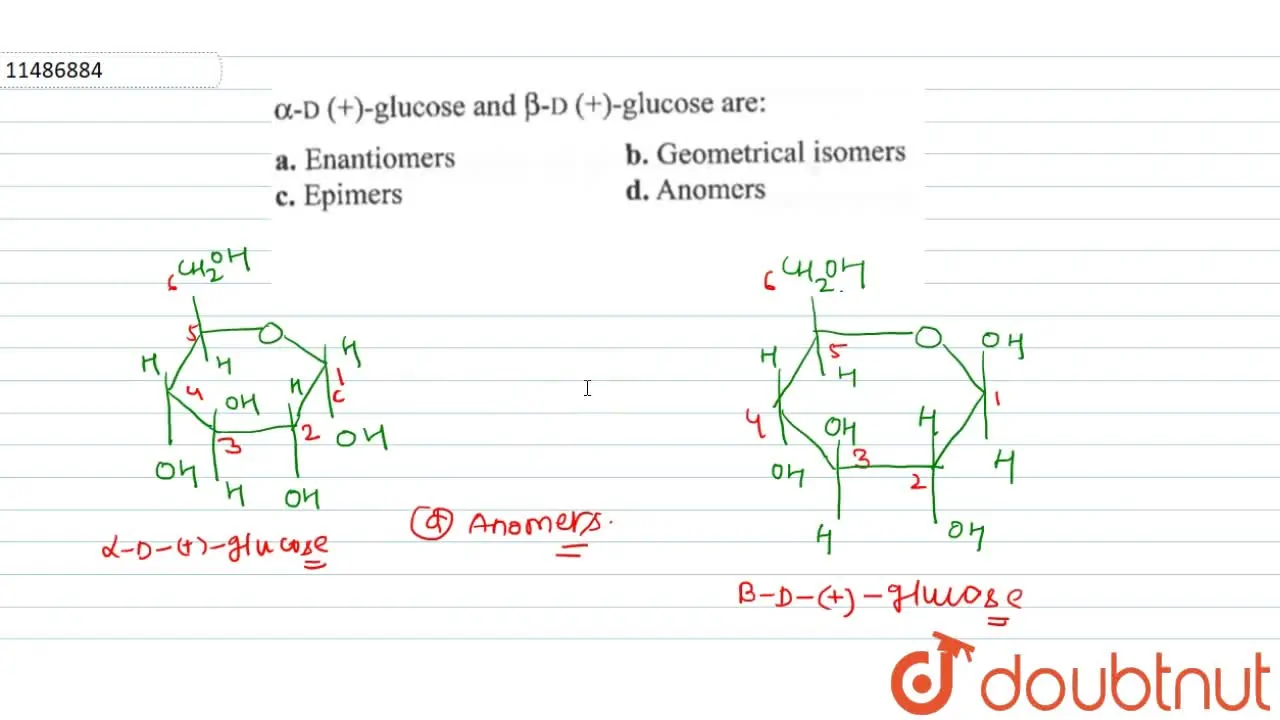 11486884
α-D (+)-glucose and β-D (+)-glucose are:
a. Enantiomers b. Geometrical isomers
c. Epimers d. Anomers
6 CH2OH
5 O H
H H 1
4 H C
OH
3 2 OH
OH H OH
α-D-(+)-glucose
(d) Anomers.
6 CH2OH
O OH
H 5
H 1
4 OH H
3
OH 2 H
H OH
β-D-(+)-glucose
doubtnut